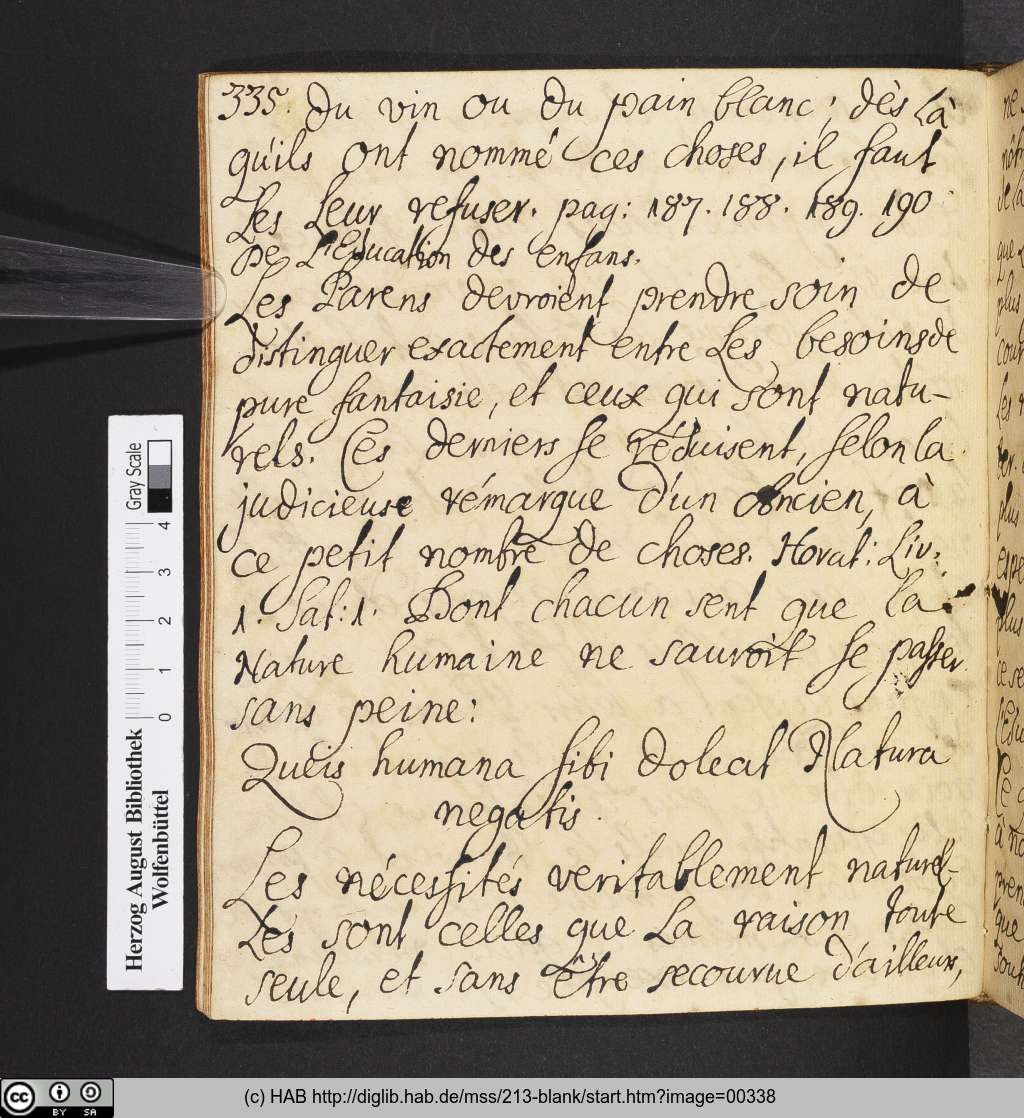 335. du vin ou du pain blanc; dès là
qu'ils ont nommé ces choses, il faut
les leur refuser. pag: 187. 188. 189. 190
De L'Education des enfans.
Les Parens devroient prendre soin de
distinguer exactement entre les besoins de
pure fantaisie, et ceux qui sont natu-
rels. Ces derniers se réduisent, selon la
judicieuse rémarque d'un Ancien, à
ce petit nombre de choses. Horat: Liv:
1. Sat: 1. Dont chacun sent que la
Nature humaine ne sauroit se passer
sans peine:
Queis humana sibi doleat Natura
negatis.
Les nécessités veritablement naturel-
les sont celles que la raison toute
seule, et sans être secourue d'ailleurs,
Gray Scale
4
3
2
1
0
Herzog August Bibliothek
Wolfenbüttel
cc BY SA
(c) HAB http://diglib.hab.de/mss/213-blank/start.htm?image=00338